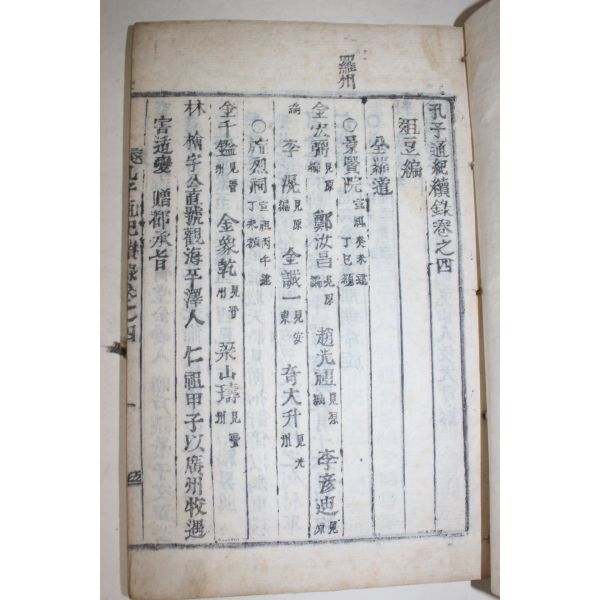 羅州
孔子通紀續錄卷之四
俎豆編
全羅道
○景賢院 宣祖癸未建 丁巳額
金宏弼 見原編 鄭汝昌 見原編 趙光祖 見原編 李彦迪 見原
編 李滉 見原編 金誠一 見安東 奇大升 見光州
○旌烈祠 宣祖丙午建 丁未額
金千鎰 見晋州 金象乾 見晋州 梁山璹 見晋州
林㮒字公直號觀海平澤人 仁祖甲子以廣州牧遇
害适變 贈都承旨